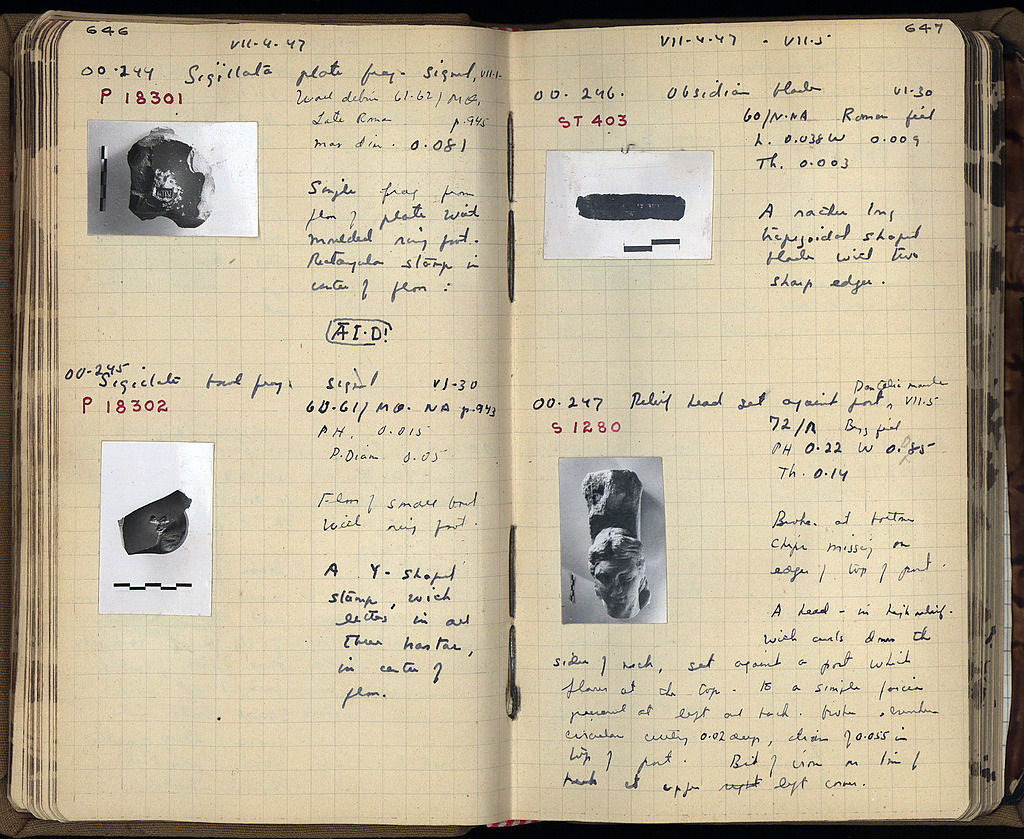 646
VII-4-47
00-244 Sigillata plate frag. signed, VII-1-
P 18301
Wall debris 61-62/ΜΘ,
Late Roman p.945
max dim. 0.081
Single frag from
floor of plate with
moulded ring foot.
Rectangular stamp in
center of floor :
00-245.
Sigillata bowl frag. signed VI-30
P 18302
60-61/ΜΘ-ΝΑ p.943
PH. 0.015
P.Diam 0.05
Floor of small bowl
with ring foot.
A Y-shaped
stamp, with
letters in all
three hastae,
in center of
floor.
647
VII-4-47 - VII-5
00-246. Obsidian blade VI-30
ST 403
60/Ν-ΝΑ Roman fill
L. 0.038 W 0.009
Th. 0.003
A rather long
trapezoidal shaped
blade with two
sharp edges.
Pentelic marble
00-247 Relief head set against post, VII-5
S 1280
72/Λ Byz fill
PH 0.22 W 0.085
Th. 0.14
Broken at bottom
Chips missing on
edges of top of post.
A head - in high relief.
with curls down the
sides of neck, set against a post which
flares at the top. To a simple
preserved at left and back. broken
circular cutting 0.02 deep, diam of 0.055 in
top of post. Bit of iron on line of
break at upper right left corner.